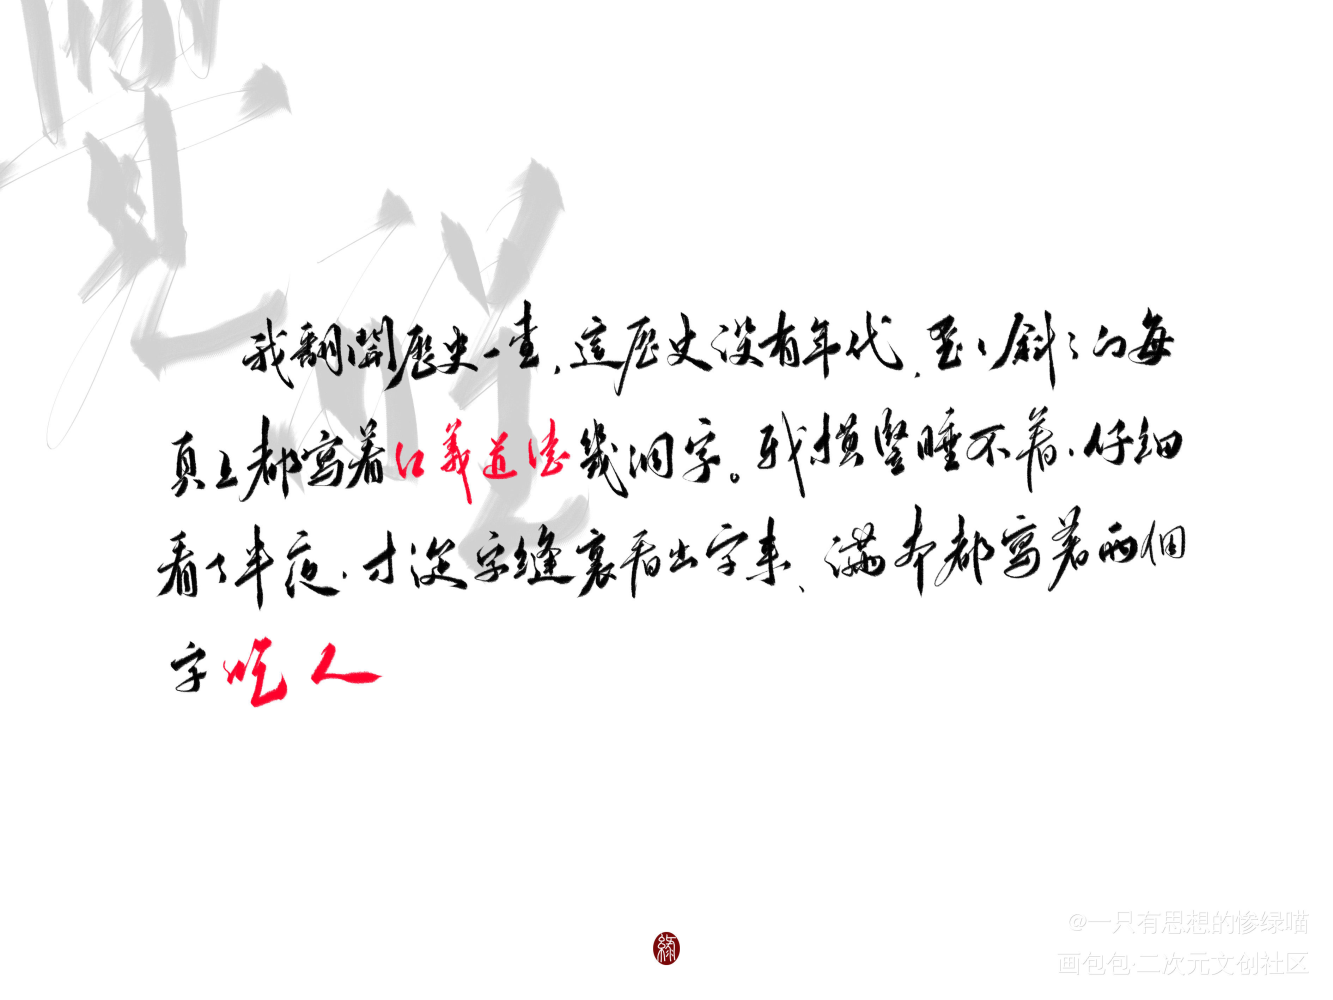 覺
醒
我翻開歷史一查,這歷史沒有年代,歪歪斜斜的每
頁上都寫着仁義道德幾個字。我橫豎睡不着,仔細
看了半夜,才從字縫裏看出字來、滿本都寫着兩個
字吃人
@一只有思想的惨绿喵
画包包·二次元文创社区